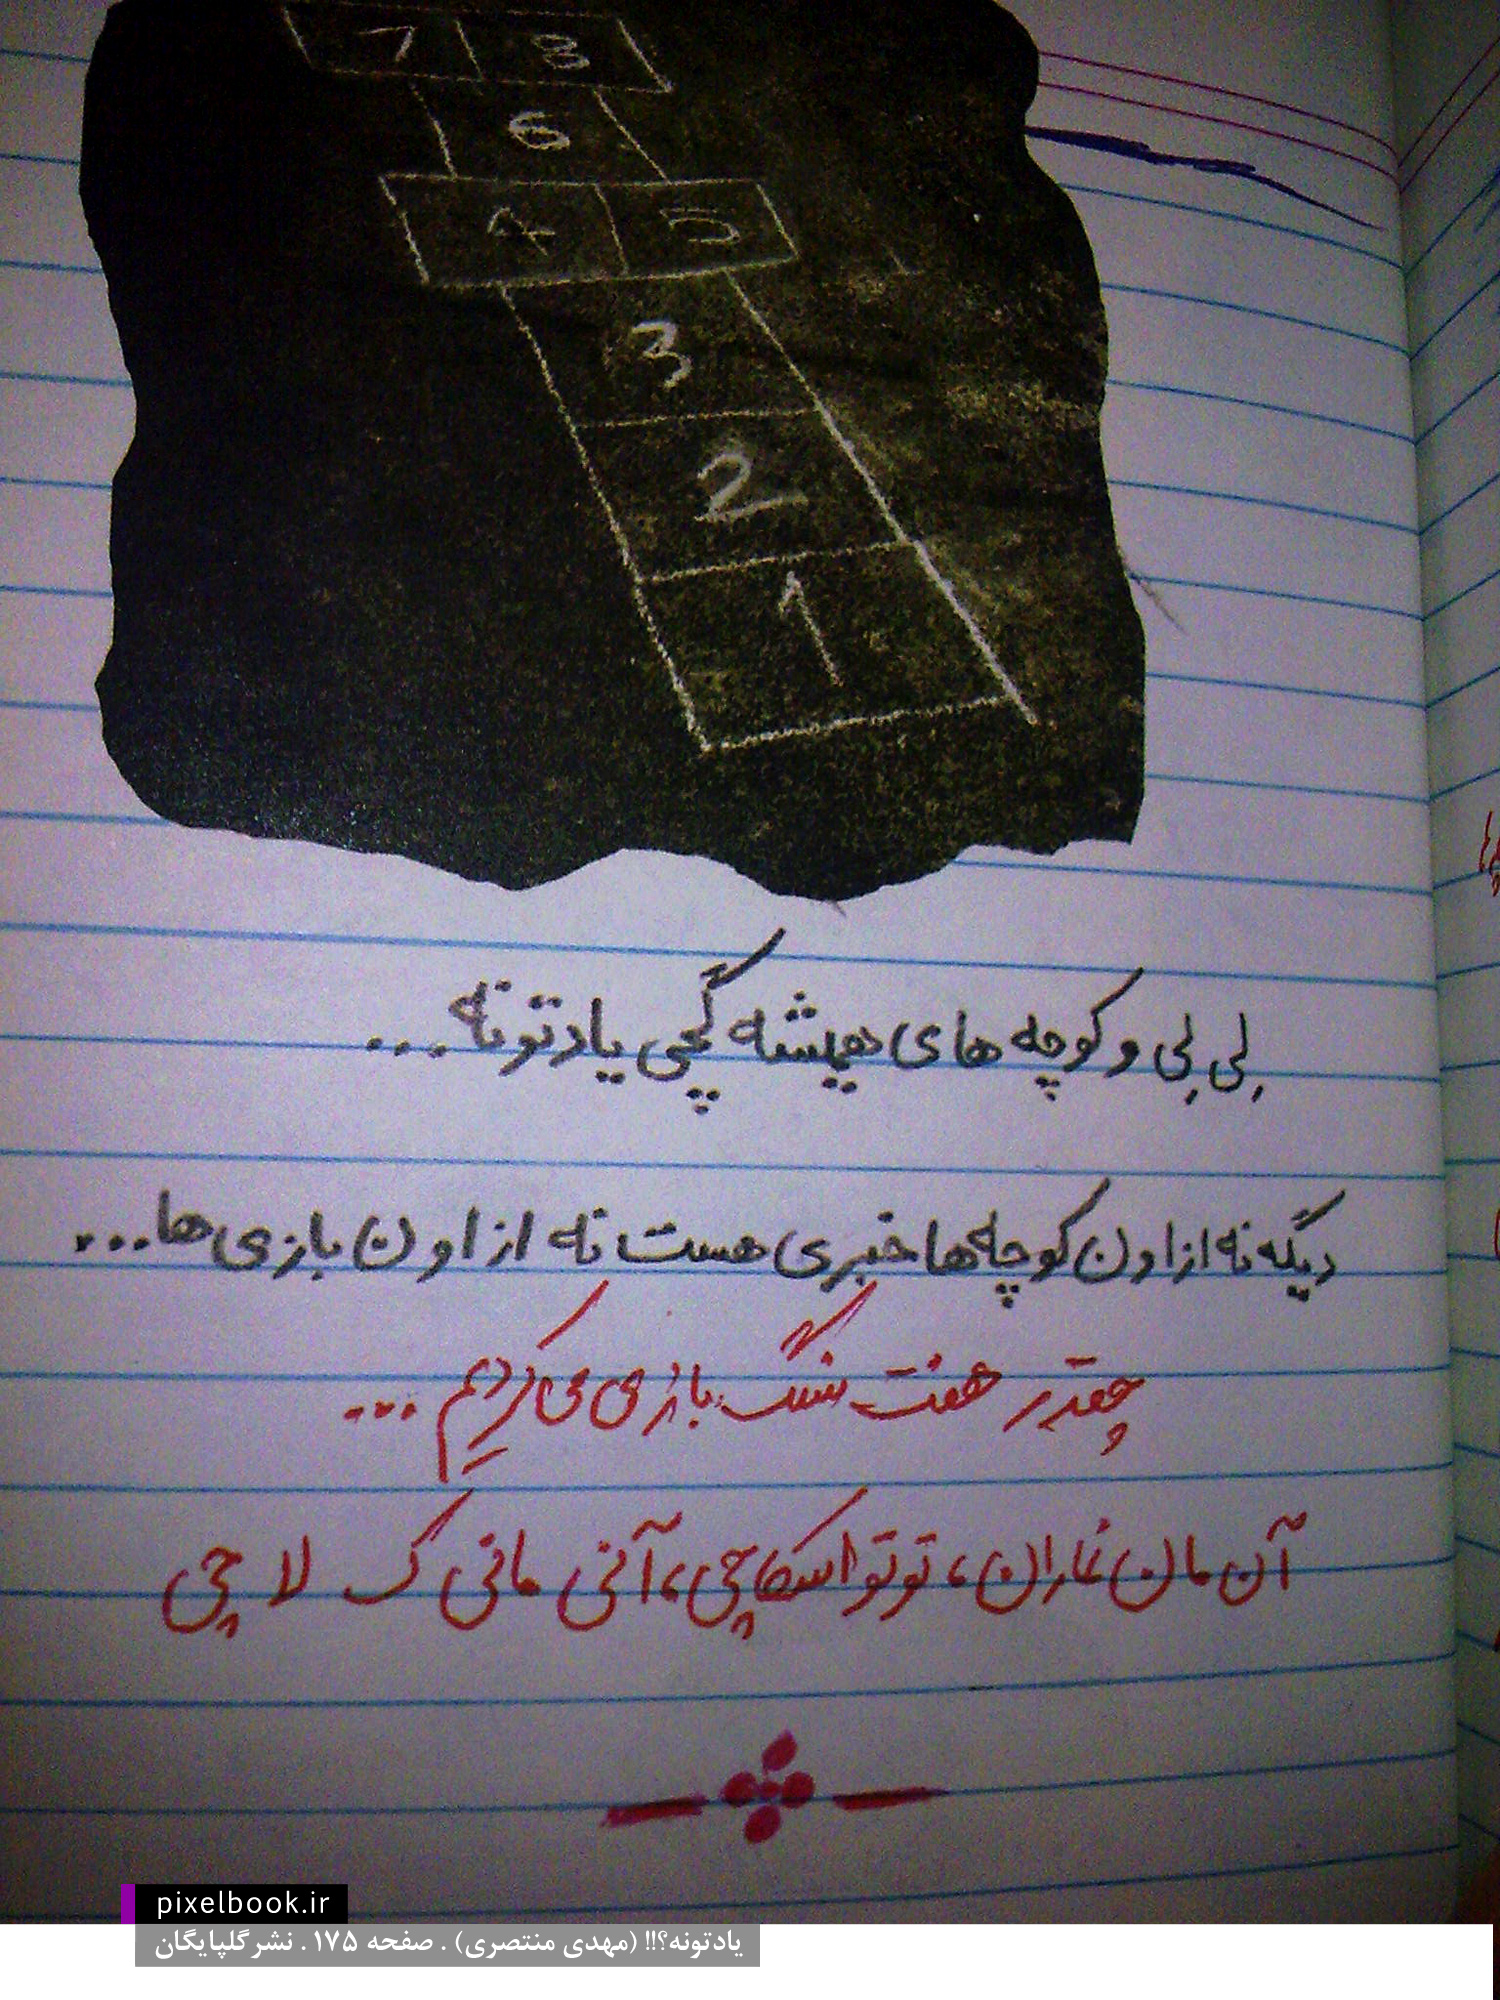 7 8
6
4 5
3
2
1
لِی لِی و کوچه های همیشه گچی یادتونه...
دیگه نه از اون کوچه ها خبری هست نه از اون بازی ها...
چقدر هفت سنگ بازی می کردیم...
آن مان نماران، تو تو اسکاچی، آنی مانی ک لا چی
pixelbook.ir
یادتونه؟!! (مهدی منتصری) . صفحه ۱۷۵ . نشر گلپایگان